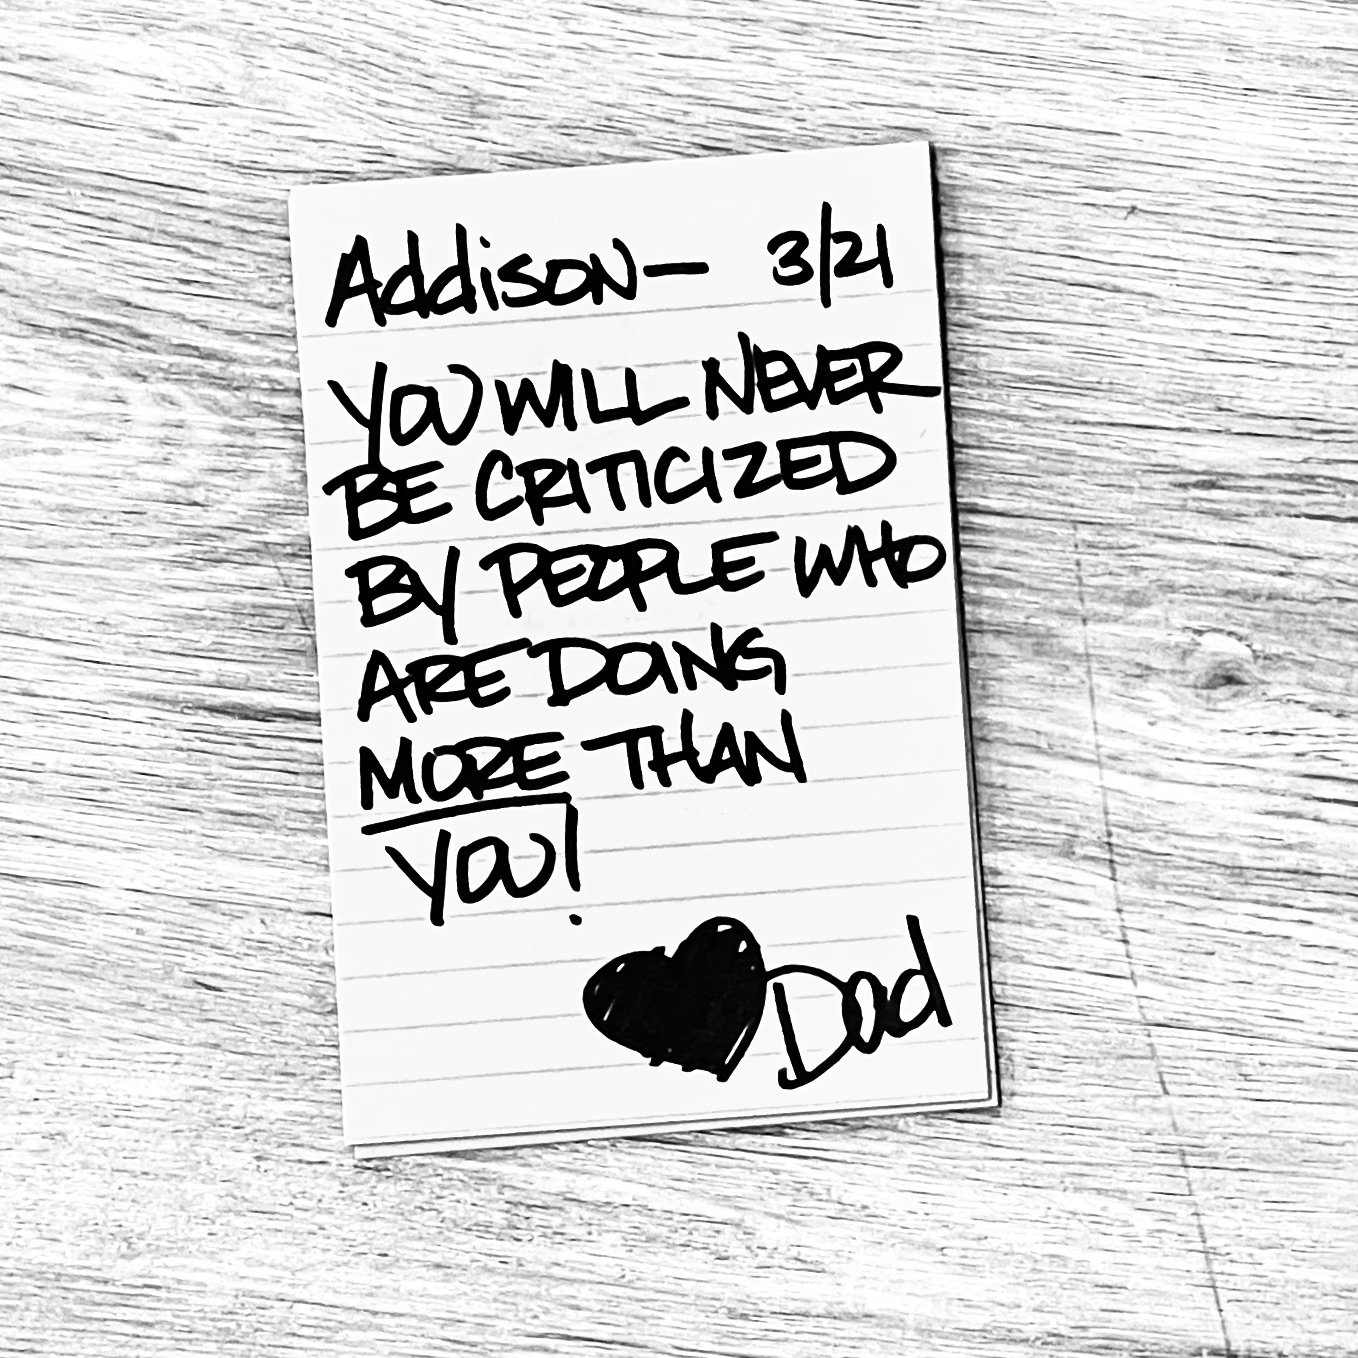 Addison— 3/21
YOU WILL NEVER
BE CRITICIZED
BY PEOPLE WHO
ARE DOING
MORE THAN
YOU!
Dad